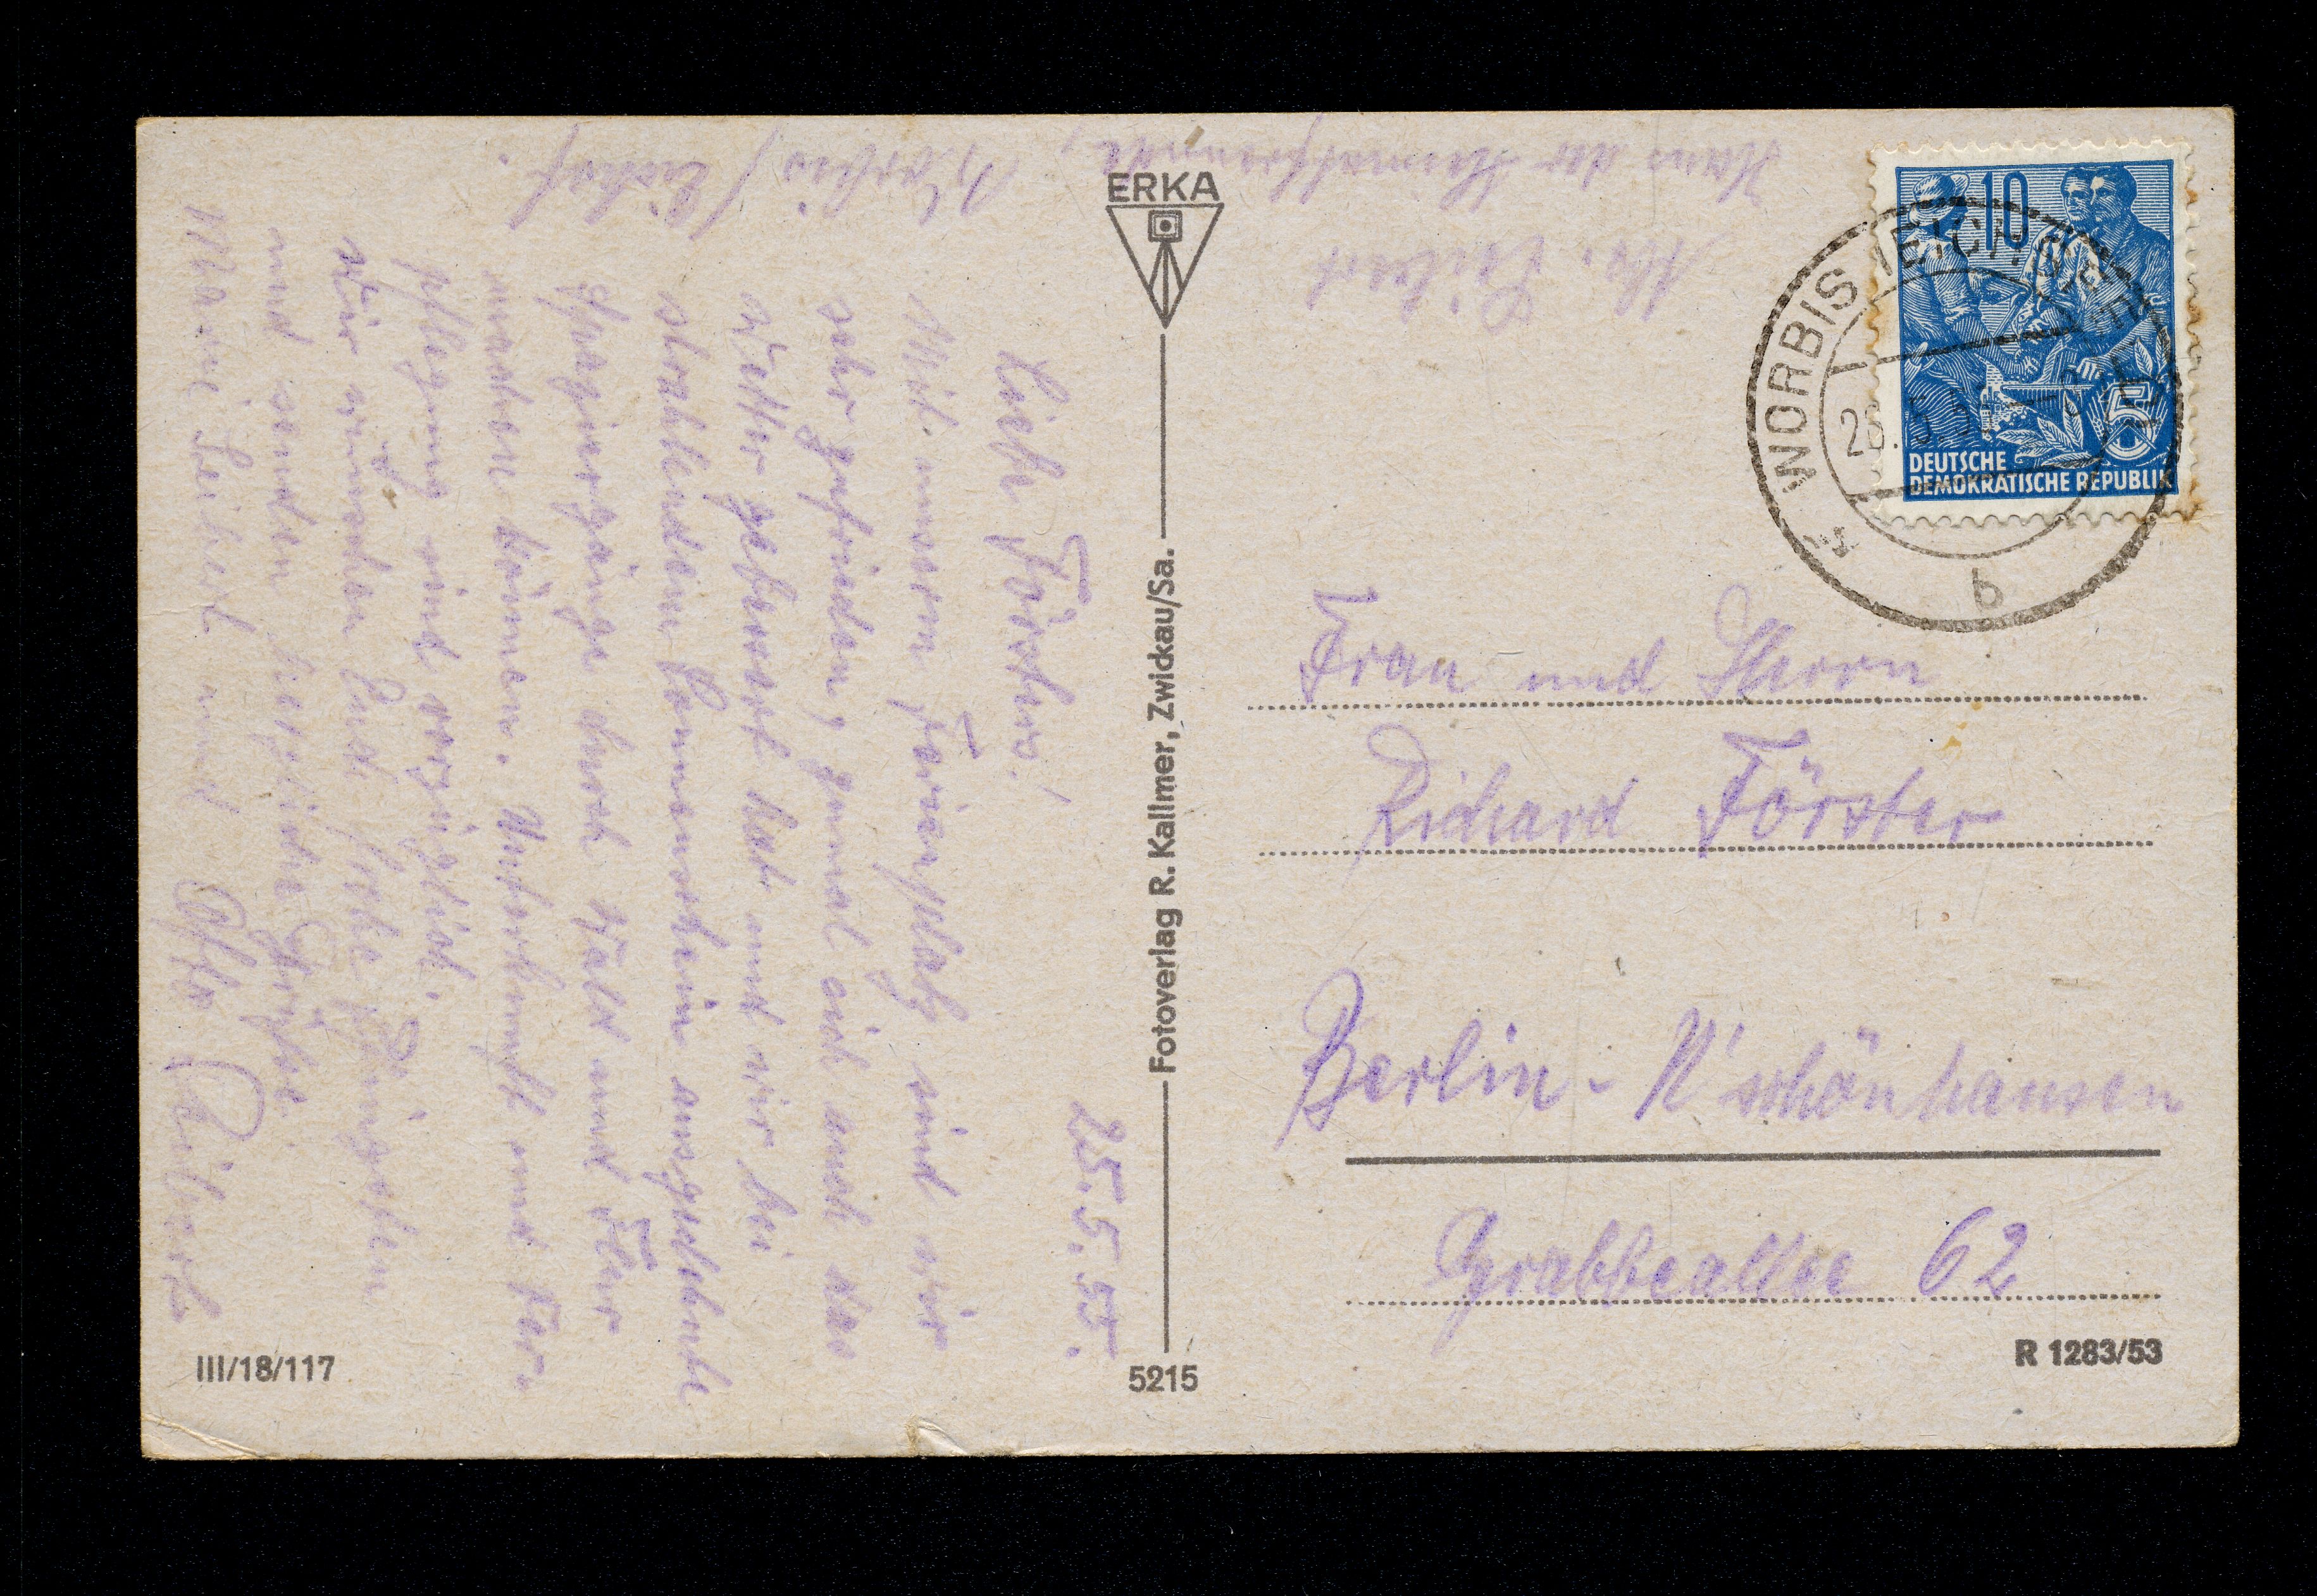 Abs. Leibert
Haus der Heimatfreunde,
Worbis / Eichsf.
25.5.55.
Liebe Försters!
Mit unserm Ferienplatz sind wir
sehr zufrieden, zumal sich auch das
Wetter gebessert hat und wir bei
strahlendem Sonnenschein ausgedehnte
Spaziergänge durch Wald und Flur
machen können. Unterkunft und Ver-
pflegung sind vorzüglich.
Wir wünschen Euch frohe Pfingsten
und senden herzliche Grüße.
Marie Leibert und Otto Leibert
ERKA
Fotoverlag R. Kallmer, Zwickau/Sa.
5215
III/18/117
10
5
DEUTSCHE
DEMOKRATISCHE REPUBLIK
WORBIS (EICHSF
b
Frau und Herrn
Richard Förster
Berlin-N'schönhausen
Grabbeallee 62
R 1283/53